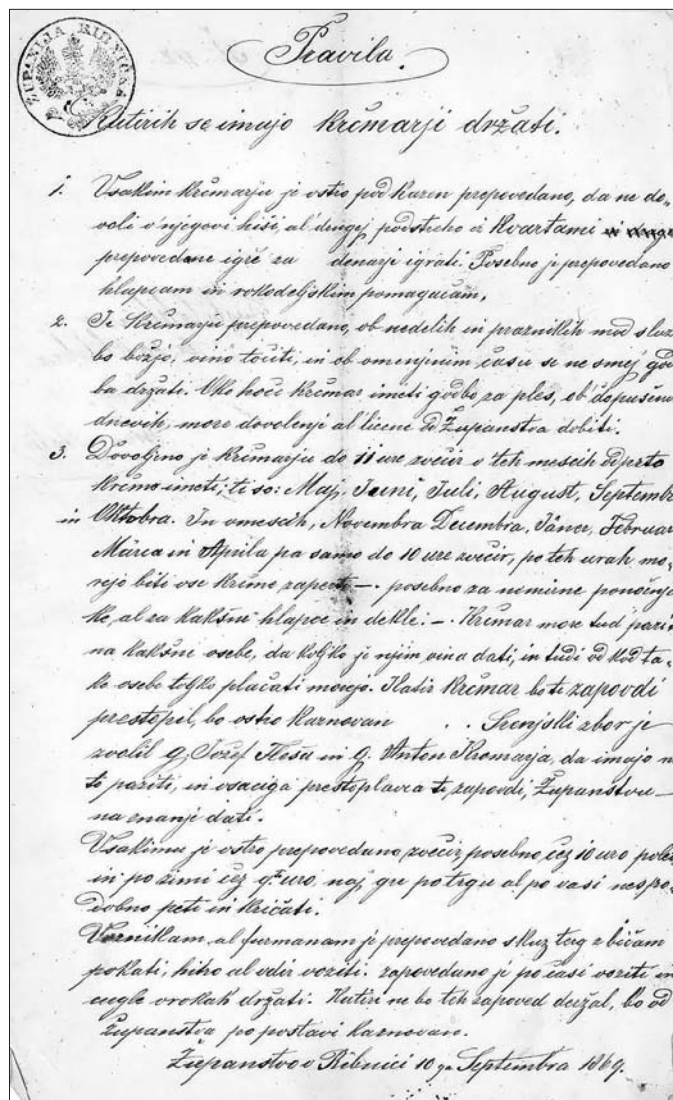 ŽUPANIJA RIBNIŠKA
Pravila.
Katirih se imajo krčmarji držati.
1. Vsakim krčmarju je ostro pod kazen prepovedano, da ne do„
voli v njegovi hiši, al drugej pod streho iz kvartami
prepovedane igre za denarje igrati. Posebno je prepovedano
hlapcam in rokodeljskim pomagačam.
2. Je krčmarju prepovedano, ob nedelih in praznikih med služ
bo božjo, vino točiti, in ob omenjenim času se ne smej god
ba držati. Ako hoče krčmar imeti godbo za ples, ob dopušenih
dnevih, more dovolenje al licenc od Županstva dobiti.
3. Dovoljeno je krčmarju do 11 ure zvečir v teh mescih odprto
krčmo imeti; ti so: Maj, Juni, Juli, August, Septembr
in Oktobra. In v mescih, Novembra Decembra, Jäner, Februar
Märca in Aprila pa samo do 10 ure zvečir, po teh urah mo„
rejo biti vse krčme zaperte —. posebno za nemirne ponočnja
ke, al za kakšne hlapce in dekle: —. Krčmar more tud pazit
na kakšne osebe, da koljko je njim vina dati, in tudi od kod ta„
ke osebe toljko plačati morejo. Katir krčmar bo te zapovdi
prestopil, bo ostro karnovan . . Srenjski zbor je
zvolil g. Jožef Flesa in g. Anton Kromarja, da imajo na
to paziti, in vsaciga prestoplavca te zapovdi, Županstvu —
na znanje dati.
Vsakimu je ostro prepovedano, zvečir, posebno čez 10 uro poleti
in po zimi čez 9to uro, naj gre po trgu al po vasi nespo„
dobno peti in kričati.
Voznikam al furmanam je prepovedano skuz terg z bičam
pokati, hitro al vdir voziti. zapovedano je počasi voziti in
cugle v rokah držati. Katiri ne bo teh zapoved deržal, bo od
Županstva po postavi karnovan.
Županstvo v Ribnici 10ga Septembra 1869.